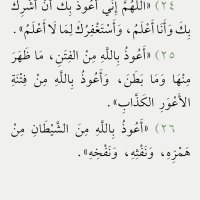 (٢٤) «اللَّهُمَّ إِنِّي أَعُوذُ بِكَ أَنْ أُشْرِكَ
بِكَ وَأَنَا أَعْلَمُ، وَأَسْتَغْفِرُكَ لِمَا لَا أَعْلَمُ».
(٢٥) «أَعُوذُ بِاللَّهِ مِنَ الْفِتَنِ، مَا ظَهَرَ
مِنْهَا وَمَا بَطَنَ، وَأَعُوذُ بِاللَّهِ مِنْ فِتْنَةِ
الأَعْوَرِ الكَذَّابِ».
(٢٦) «أَعُوذُ بِاللَّهِ مِنَ الشَّيْطَانِ مِنْ
هَمْزِهِ، وَنَفْثِهِ، وَنَفْخِهِ».